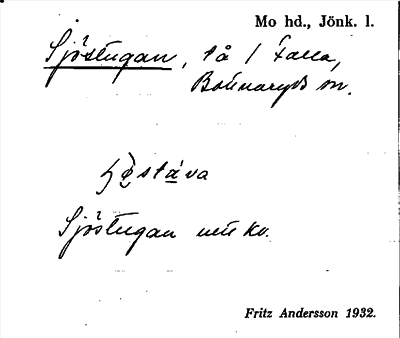 Mo hd., Jönk. l.
Sjöstugan, tå / Falla,
Bottnaryds sn.
Sjöstugan
Fritz Andersson 1932.